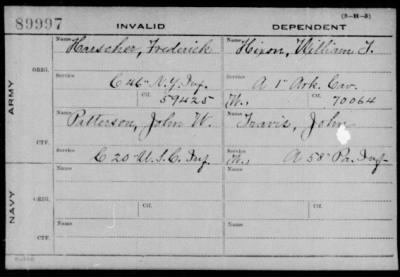 89997 INVALID DEPENDENT (3-H-3)
ARMY
ORIG.
Name Haescher, Frederick
Name Hixon, William T.
Service C 46" N.Y. Inf.
Service A 1" Ark. Cav.
Ctf. 59425
W., Ctf. 70064
CTF.
Name Patterson, John W.
Name Travis, John
Service C 20 U.S.C. Inf.
Service W., A 58" Pa. Inf.
NAVY
ORIG.
Name
Name
Service
Ctf.
Service
Ctf.
CTF.
Name
Name
Service
Service